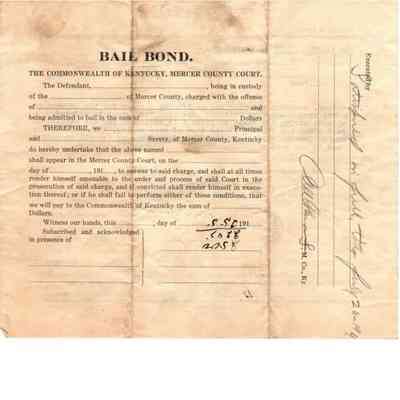 BAIL BOND.
THE COMMONWEALTH OF KENTUCKY, MERCER COUNTY COURT.
The Defendant, , being in custody
of the of Mercer County, charged with the offense
of and
being admitted to bail in the sum of Dollars
THEREFORE, we Principal
and Surety, of Mercer County, Kentucky
do hereby undertake that the above named
shall appear in the Mercer County Court, on the
day of , 191 , to answer to said charge, and shall at all times
render himself amenable to the order and process of said Court in the
prosecution of said charge, and if convicted shall render himself in execu-
tion thereof; or if he shall fail to perform either of these conditions, that
we will pay to the Commonwealth of Kentucky the sum of
Dollars.
Witness our hands, this , day of 191
Subscribed and acknowledged
in presence of
Executed by
in full this July 2
M. Co., Ky.